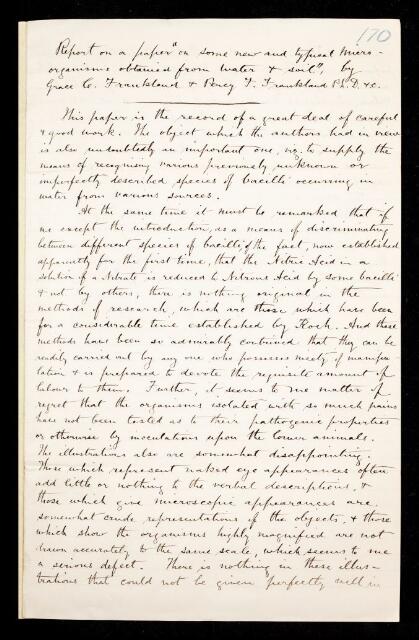 170
Report on a paper "on some new and typical micro-
organisms obtained from water & soil", by
Grace C. Frankland & Percy F. Frankland Ph.D. &c.
This paper is the record of a great deal of careful
& good work. The object which the authors had in view
is also undoubtedly an important one, viz. to supply the
means of recognising various previously unknown or
imperfectly described species of bacilli occurring in
water from various sources.
At the same time it must be remarked that if
we except the introduction, as a means of discriminating
between different species of bacilli, of the fact, now established
apparently for the first time, that the Nitric Acid in a
solution of a Nitrate is reduced to Nitrous Acid by some bacilli
& not by others, there is nothing original in the
methods of research, which are those which have been
for a considerable time established by Koch. And these
methods have been so admirably contrived that they can be
readily carried out by any one who possesses nicety of manipu-
lation & is prepared to devote the requisite amount of
labour to them. Further, it seems to me matter of
regret that the organisms isolated with so much pains
have not been tested as to their pathogenic properties
or otherwise by inoculations upon the lower animals.
The illustrations also are somewhat disappointing.
Those which represent naked eye appearances often
add little or nothing to the verbal descriptions, &
those which give microscopic appearances are
somewhat crude representations of the objects, & those
which show the organisms highly magnified are not
drawn accurately to the same scale, which seems to me
a serious defect. There is nothing in these illus-
trations that could not be given perfectly well in